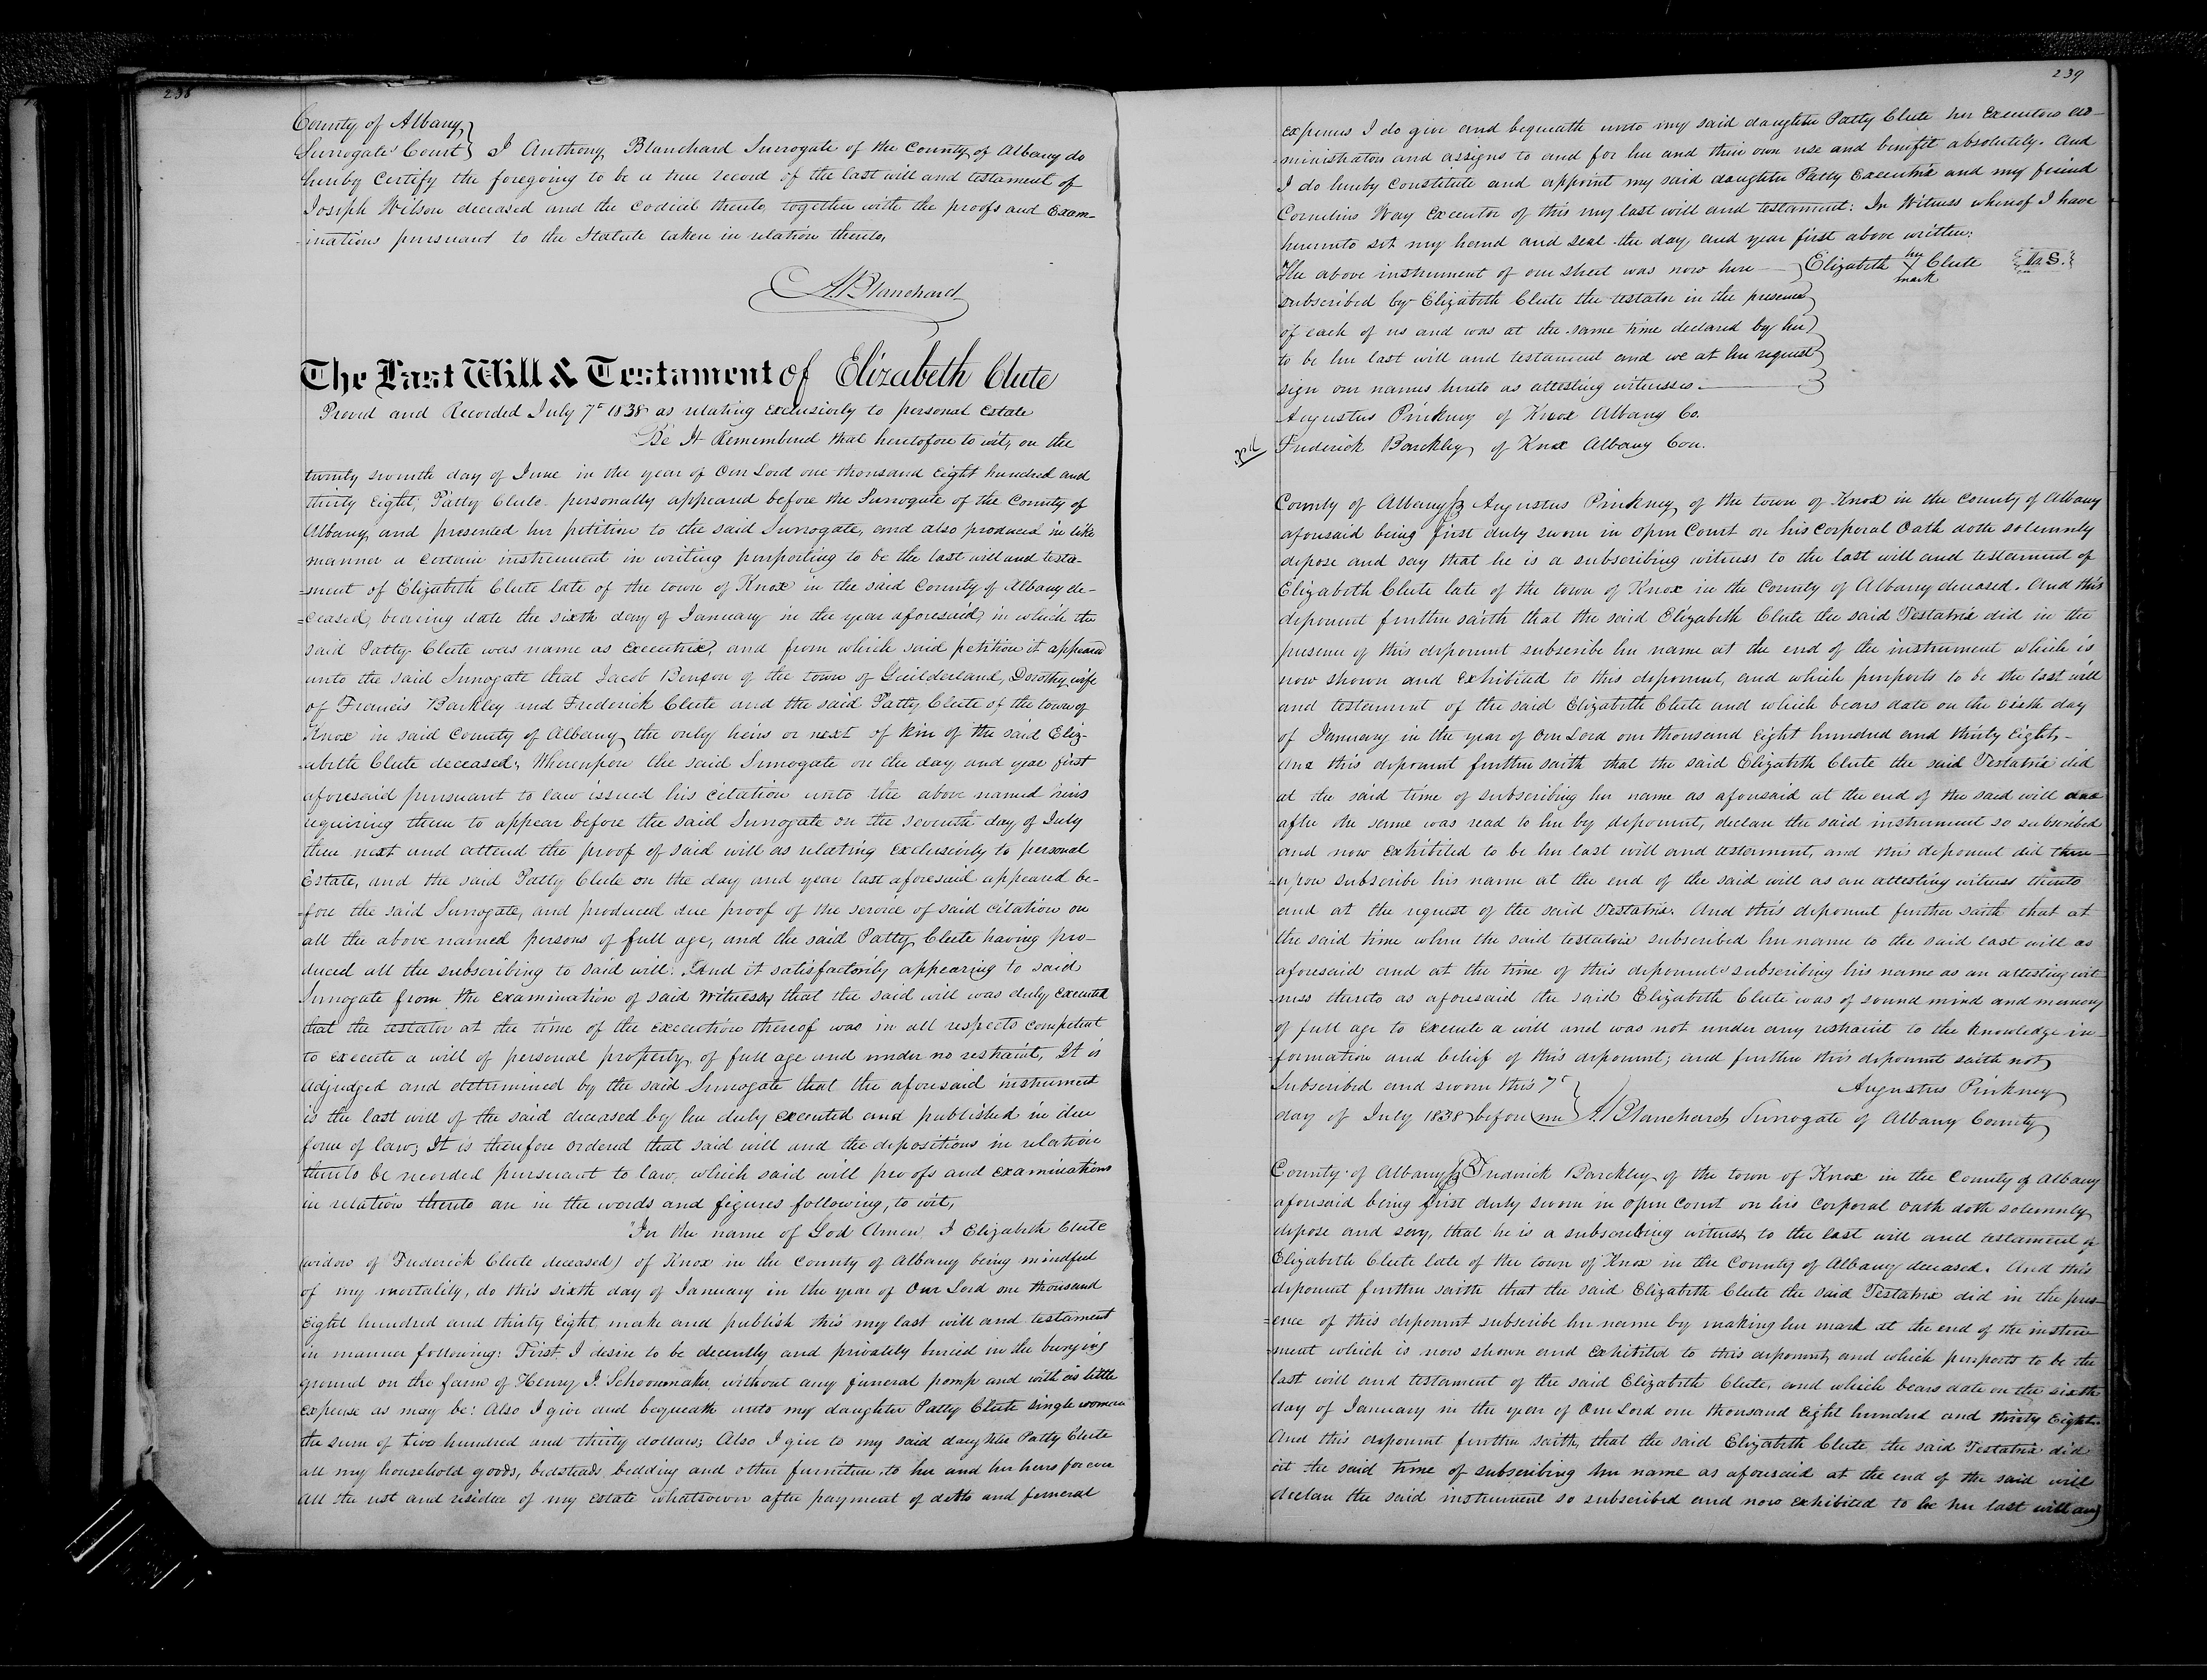 238
County of Albany }
Surrogate Court } I Anthony Blanchard Surrogate of the County of Albany do
hereby Certify the foregoing to be a true record of the last will and testament of
Joseph Wilson deceased and the codicil thereto, together with the proofs and Exam-
-inations pursuant to the Statute taken in relation thereto,
A. Blanchard
The Last Will & Testament of Elizabeth Clute
Proved and Recorded July 7th 1838 as relating exclusively to personal Estate
Be It Remembered that heretofore to wit, on the
twenty seventh day of June in the year of Our Lord one thousand Eight hundred and
thirty Eight, Patty Clute personally appeared before the Surrogate of the County of
Albany and presented her petition to the said Surrogate, and also produced in like
manner a certain instrument in writing purporting to be the last will and testa-
-ment of Elizabeth Clute late of the town of Knox in the said County of Albany de-
-ceased, bearing date the sixth day of January in the year aforesaid, in which the
said Patty Clute was name as Executrix, and from which said petition it appeared
unto the said Surrogate that Jacob Benson of the town of Guilderland, Dorothy wife
of Francis Barkley and Frederick Clute and the said Patty Clute of the town of
Knox in said County of Albany the only heirs or next of kin of the said Eliz-
-abeth Clute deceased; Whereupon the said Surrogate on the day and year first
aforesaid pursuant to law issued his citation unto the above named heirs
requiring them to appear before the said Surrogate on the seventh day of July
then next and attend the proof of said will as relating exclusively to personal
Estate, and the said Patty Clute on the day and year last aforesaid appeared be-
-fore the said Surrogate, and produced due proof of the service of said citation on
all the above named persons of full age, and the said Patty Clute having pro-
duced all the subscribing to said will. And it satisfactorily appearing to said
Surrogate from the examination of said Witnesses that the said will was duly executed
that the testator at the time of the execution thereof was in all respects competent
to execute a will of personal property, of full age and under no restraint, It is
adjudged and determined by the said Surrogate that the aforesaid instrument
is the last will of the said deceased by her duly executed and published in due
form of law; It is therefore ordered that said will and the depositions in relation
thereto be recorded pursuant to law, which said will proofs and examinations
in relation thereto are in the words and figures following, to wit,
"In the name of God Amen, I Elizabeth Clute
(widow of Frederick Clute deceased) of Knox in the County of Albany being mindful
of my mortality, do this sixth day of January in the year of Our Lord one thousand
Eight hundred and thirty Eight make and publish this my last will and testament
in manner following: First I desire to be decently and privately buried in the burying
ground on the farm of Henry I. Schoonmaker without any funeral pomp and with as little
expense as may be: Also I give and bequeath unto my daughter Patty Clute single woman
the sum of two hundred and thirty dollars; Also I give to my said daughter Patty Clute
all my household goods, bedsteads bedding and other furniture, to her and her heirs forever
All the rest and residue of my estate whatsoever after payment of debts and funeral
239
expenses I do give and bequeath unto my said daughter Patty Clute her Executors ad-
-ministrators and assigns to and for her and their own use and benefit absolutely. And
I do hereby constitute and appoint my said daughter Patty Executrix and my friend
Cornelius Way executor of this my last will and testament: In Witness whereof I have
hereunto set my hand and seal the day and year first above written:
The above instrument of one sheet was now here } Elizabeth her X mark Clute L.S.
subscribed by Elizabeth Clute the testator in the presence
of each of us and was at the same time declared by her
to be her last will and testament and we at her request
sign our names hereto as attesting witnesses.
Augustus Pinkney of Knox Albany Co.
Frederick Barckley of Knox Albany Cou.
County of Albany ss Augustus Pinkney of the town of Knox in the County of Albany
aforesaid being first duly sworn in open Court on his corporal Oath doth solemnly
depose and say that he is a subscribing witness to the last will and testament of
Elizabeth Clute late of the town of Knox in the County of Albany deceased. And this
deponent further saith that the said Elizabeth Clute the said Testatrix did in the
presence of this deponent subscribe her name at the end of the instrument which is
now shown and exhibited to this deponent, and which purports to be the last will
and testament of the said Elizabeth Clute and which bears date on the sixth day
of January in the year of Our Lord one thousand eight hundred and thirty Eight,
And this deponent further saith that the said Elizabeth Clute the said Testatrix did
at the said time of subscribing her name as aforesaid at the end of the said will and
after the same was read to her by deponent, declare the said instrument so subscribed
and now exhibited to be her last will and testament, and this deponent did there-
-upon subscribe his name at the end of the said will as an attesting witness thereto
and at the request of the said Testatrix. And this deponent further saith that at
the said time when the said testatrix subscribed her name to the said last will as
aforesaid and at the time of this deponents subscribing his name as an attesting wit-
-ness thereto as aforesaid the said Elizabeth Clute was of sound mind and memory
of full age to execute a will and was not under any restraint to the knowledge in-
-formation and belief of this deponent; and further this deponent saith not,
Subscribed and sworn this 7th } Augustus Pinkney
day of July 1838 before me } A. Blanchard, Surrogate of Albany County
County of Albany ss Fredrick Barckley of the town of Knox in the County of Albany
aforesaid being first duly sworn in open court on his corporal oath doth solemnly
depose and say, that he is a subscribing witness to the last will and testament of
Elizabeth Clute late of the town of Knox in the County of Albany deceased. And this
deponent further saith that the said Elizabeth Clute the said Testatrix did in the pres-
-ence of this deponent subscribe her name by making her mark at the end of the instru-
-ment which is now shown and exhibited to this deponent, and which purports to be the
last will and testament of the said Elizabeth Clute, and which bears date on the sixth
day of January in the year of Our Lord one thousand eight hundred and thirty Eight.
And this deponent further saith, that the said Elizabeth Clute the said Testatrix did
at the said time of subscribing her name as aforesaid at the end of the said will
declare the said instrument so subscribed and now exhibited to be her last will and